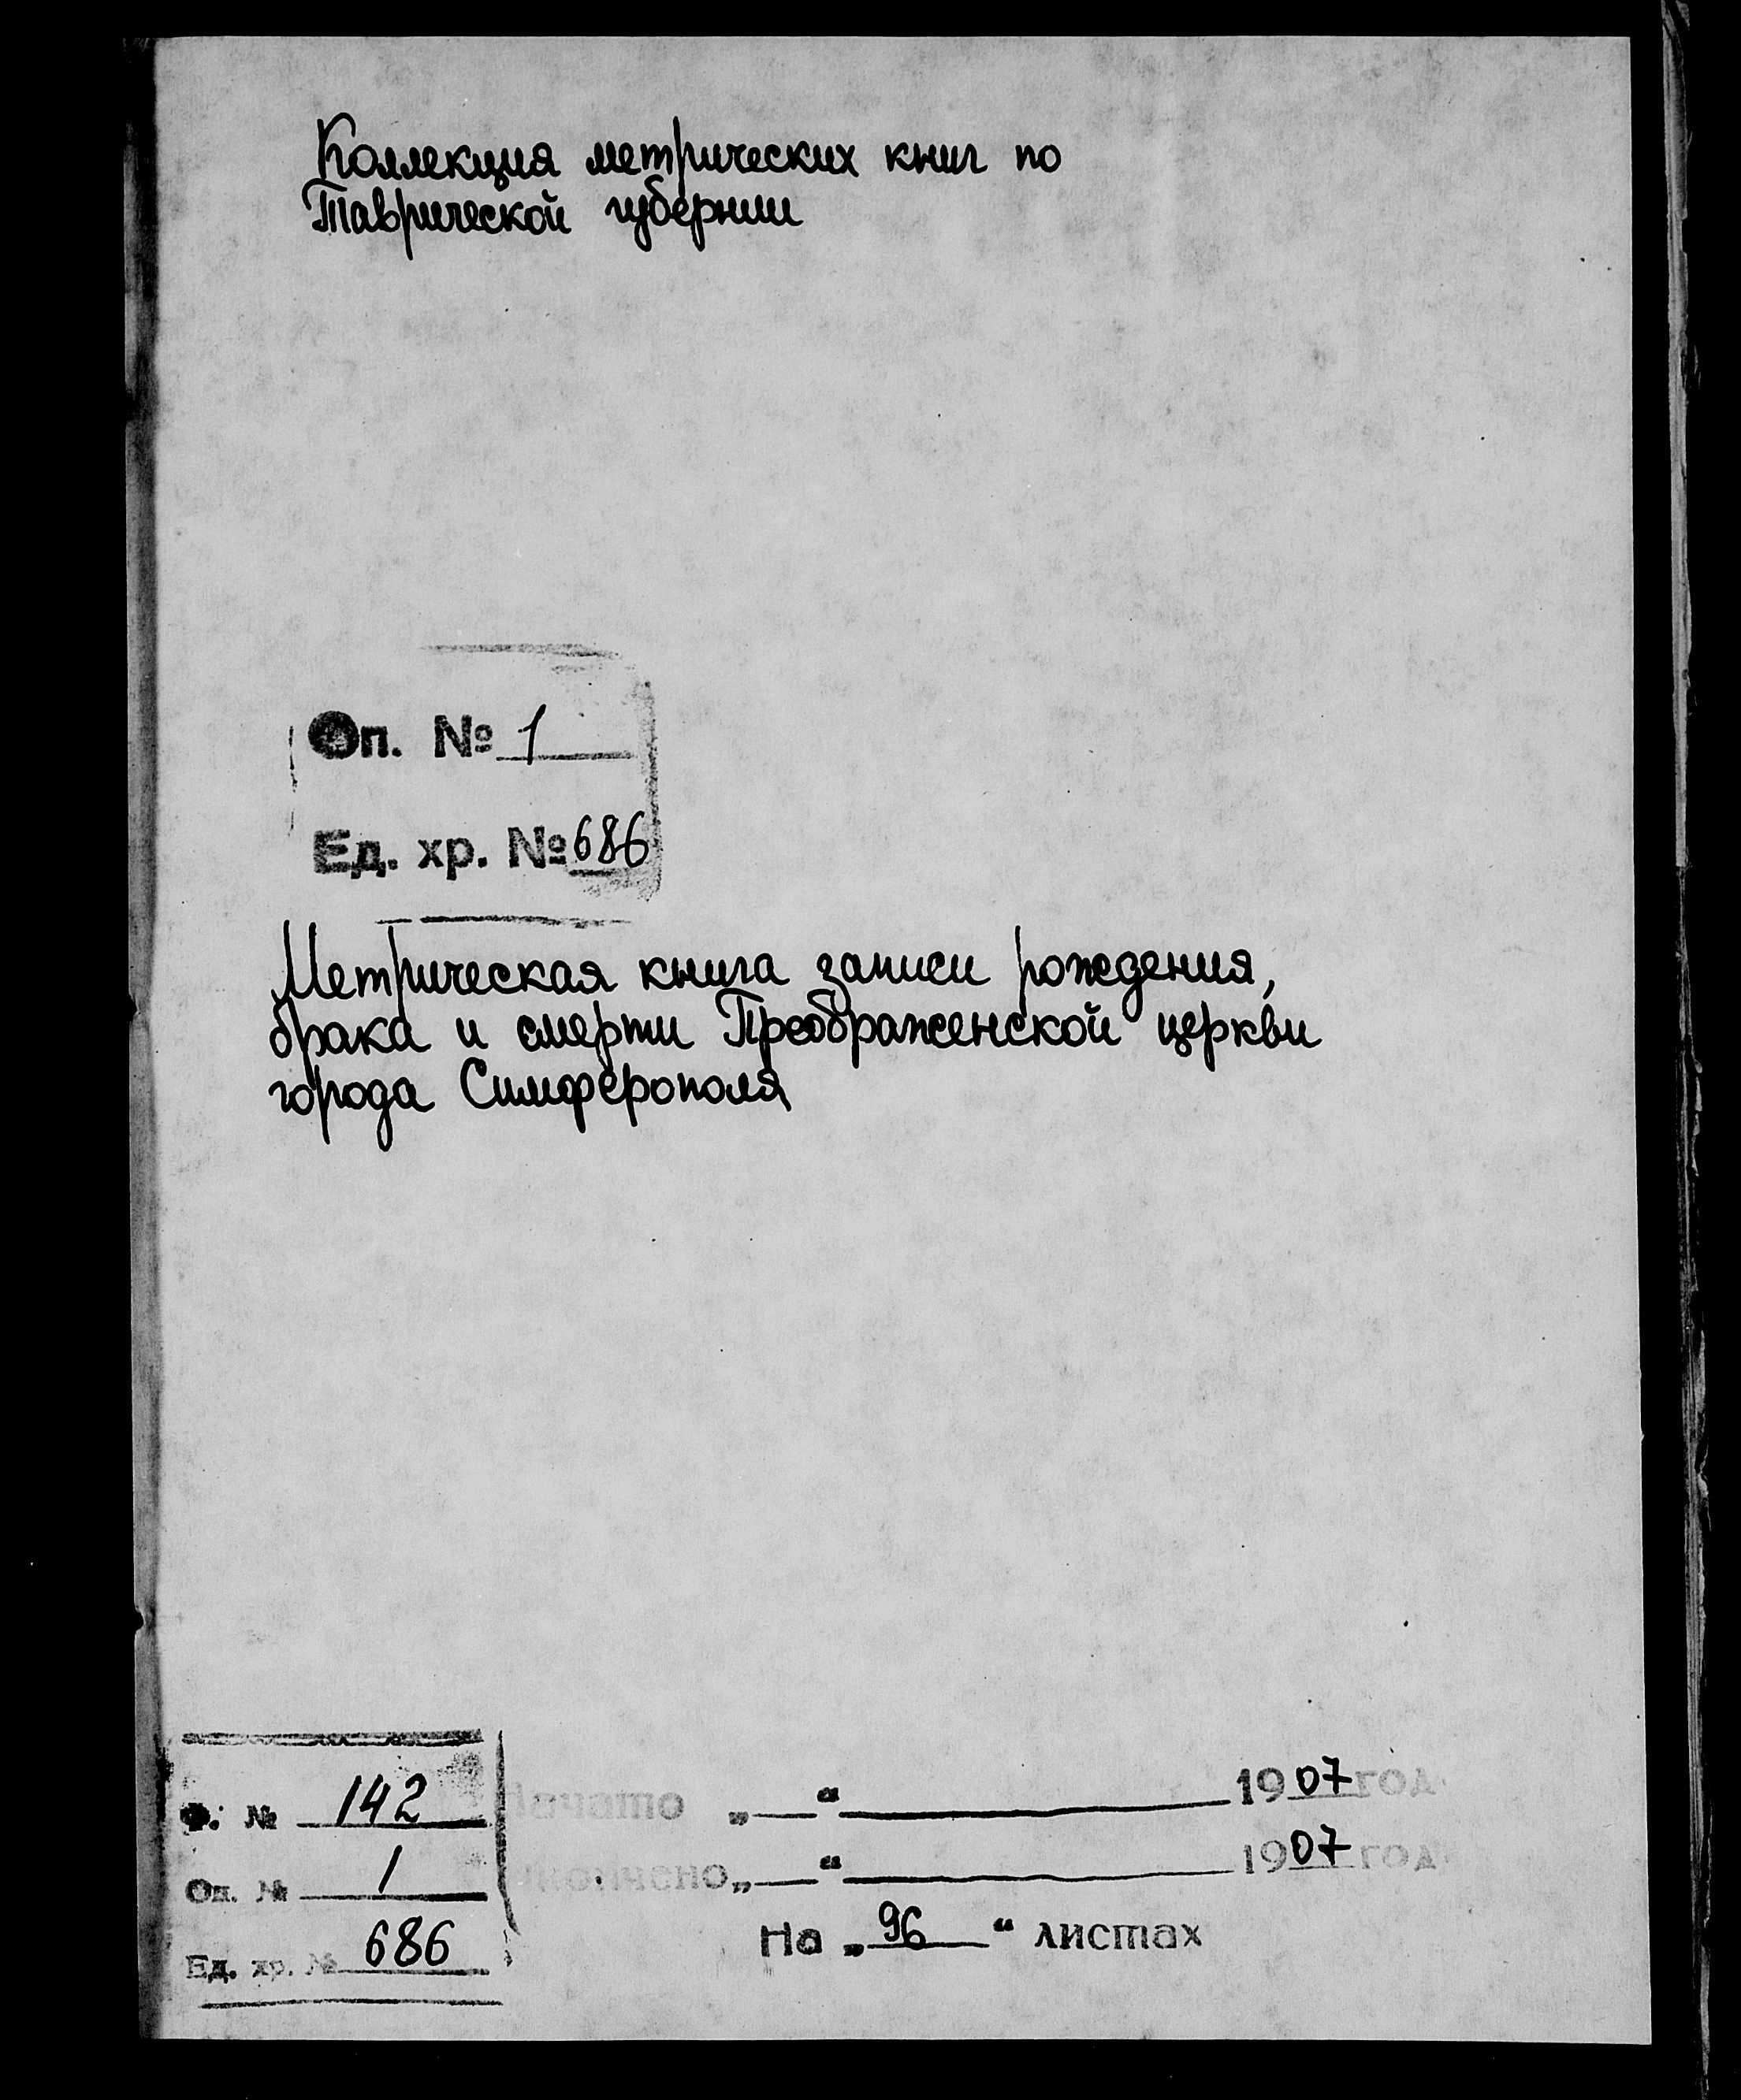 Коллекция метрических книг по
Таврической губернии
Оп. № 1
Ед. хр. № 686
Метрическая книга записи рождения,
брака и смерти Преображенской церкви
города Симферополя
Ф. № 142
Оп. № 1
Ед. хр. № 686
Начато „ “ 1907 год
Окончено „ “ 1907 год
На „96“ листах